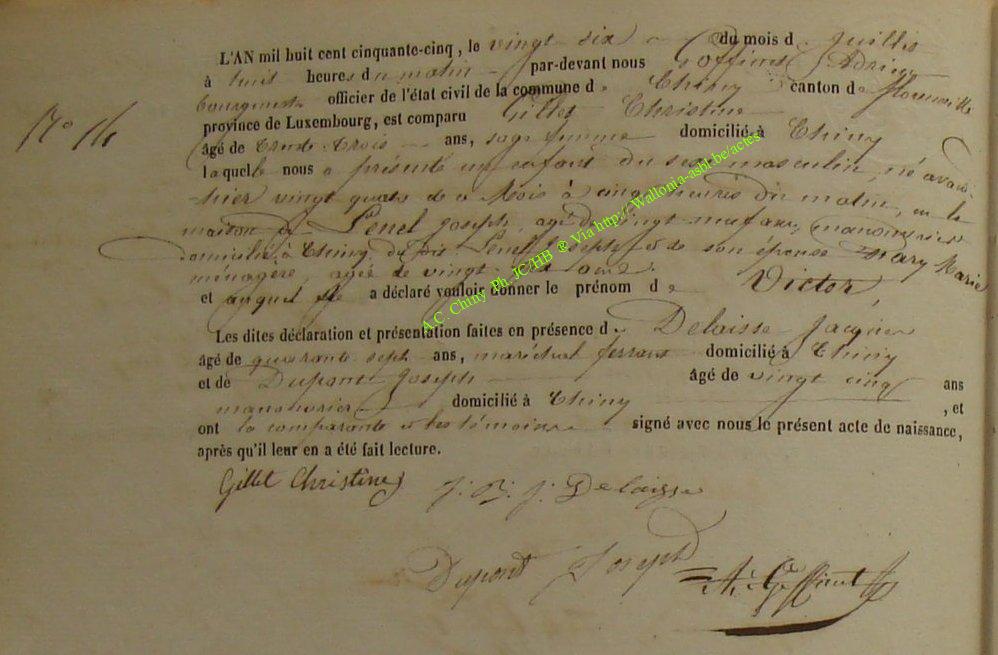 L'AN mil huit cent cinquante-cinq, le vingt six du mois d juillet
à huit heures du matin par-devant nous Adrien
bourgmestre officier de l'état civil de la commune de Chiny canton de florenville
N° 16
province de Luxembourg, est comparu Gillet Christine
âgé de trente-trois ans, sage femme domicilié à Chiny
laquelle nous a présenté un enfant du sexe masculin, né avant
hier vingt quatre de ce mois à cinq heures du matin, en la
maison de Lenel Joseph, agé de vingt neuf ans, manouvrier
domicilié à Chiny, du dit Lenel Joseph et de son épouse Mary Marie
ménagère, agée de vingt ans.
et auquel elle a déclaré vouloir donner le prénom de Victor,
Les dites déclaration et présentation faites en présence de Delaisse Jacques
âgé de quarante sept ans, maréchal ferrant domicilié à Chiny
et de Dupont Joseph âgé de vingt cinq ans
manouvrier domicilié à Chiny , et
ont la comparante et les témoins signé avec nous le présent acte de naissance,
après qu'il leur en a été fait lecture.
Gillet Christine J. B. J. Delaisse
Dupont Joseph
A.C. Chiny Ph. JC/HB ® Via http://Wallonia-asbl.be/actes